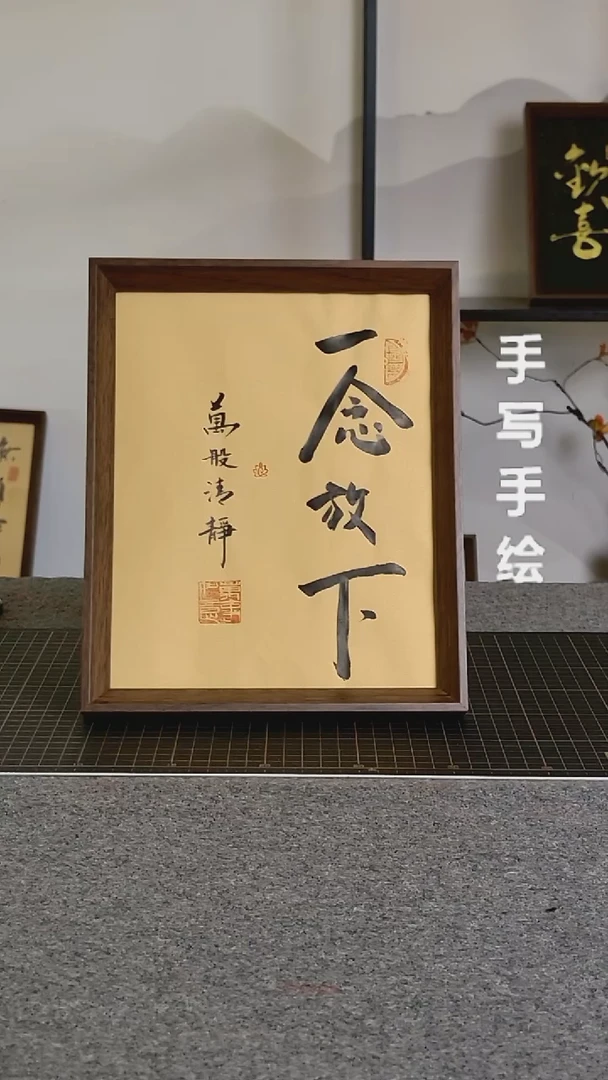 一念放下
萬般清靜
手写手绘
喜